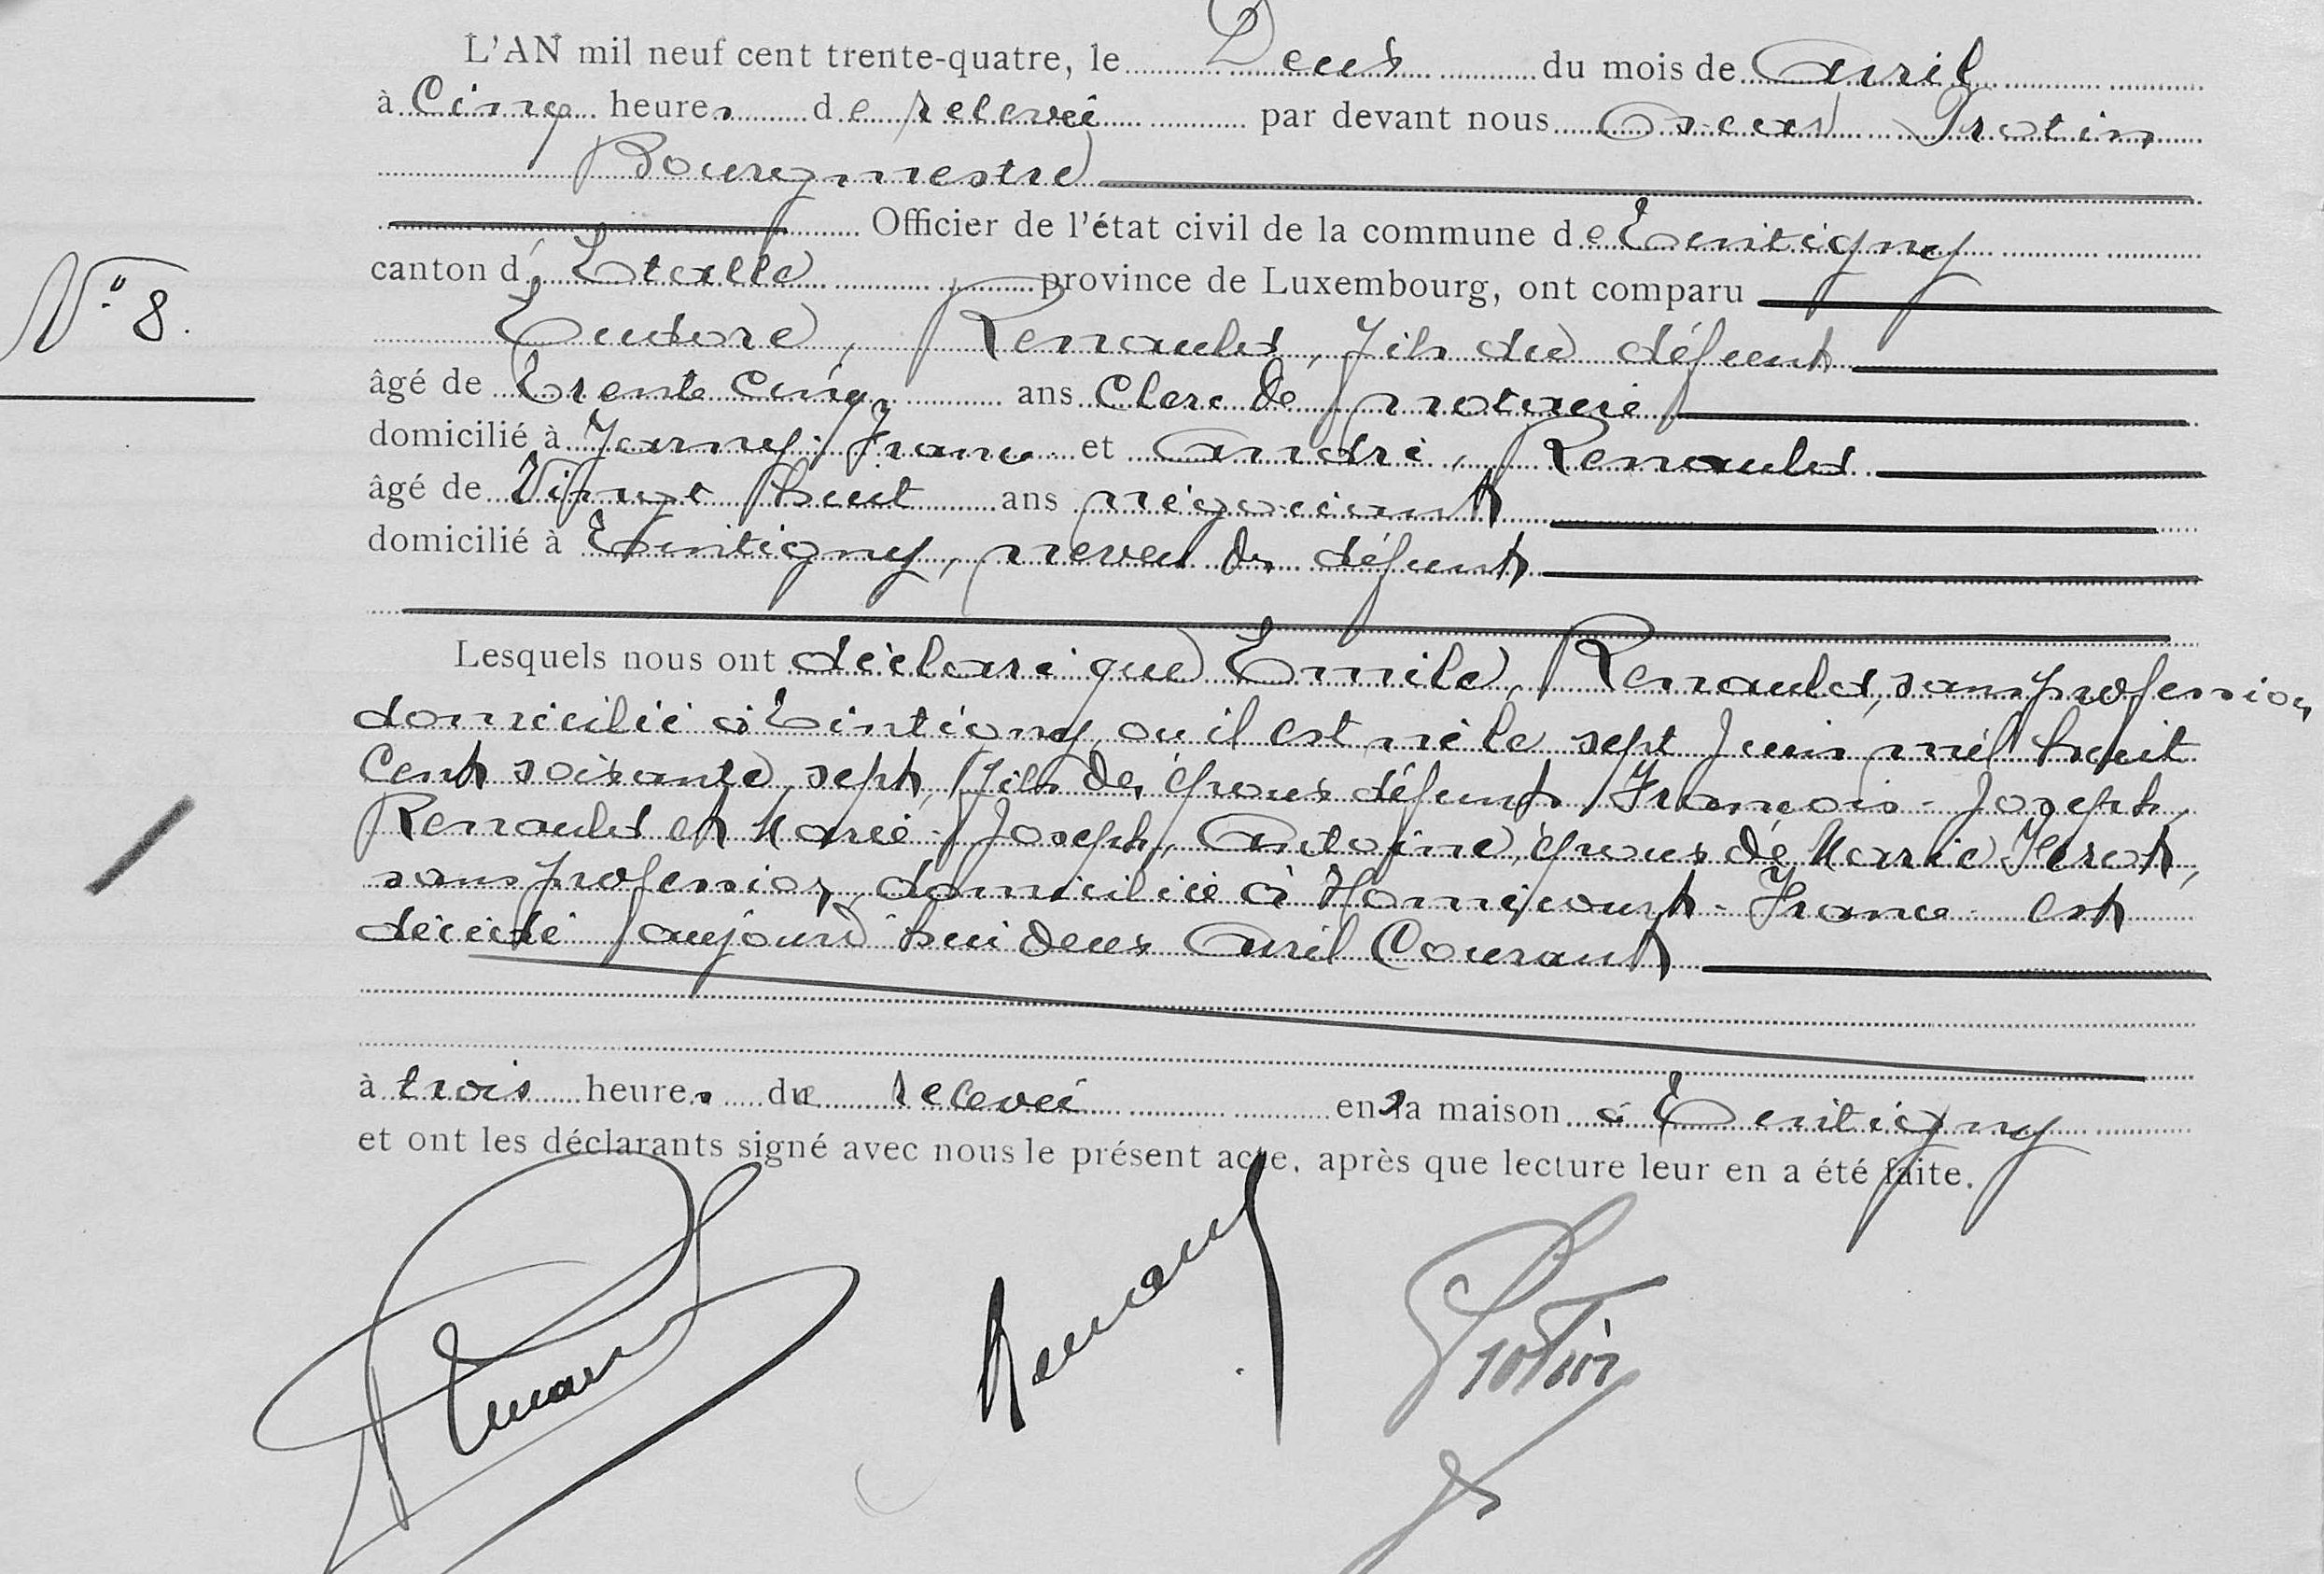 L'AN mil neuf cent trente-quatre, le Deux du mois de avril
à Cinq heures de relevée par devant nous Oscar Protin
Bourgmestre
Officier de l'état civil de la commune de Tintigny
canton d'Etalle province de Luxembourg, ont comparu
N° 8.
Eudore, Renauld, fils du défunt
âgé de trente cinq ans Clerc de notaire
domicilié à Jarny-France et André, Renauld
âgé de Vingt huit ans négociant
domicilié à Tintigny, neveu du défunt
Lesquels nous ont déclaré que Emile, Renauld, sans profession
domicilié à Tintigny, ou il est né le sept Juin mil huit
Cent soixante sept, fils des époux défunts François-Joseph
Renauld et Marie-Joseph, Antoine, époux de Marie,
sans profession, domiciliée à Homécourt-France est
décédé aujourd'hui deux Avril Courant
à trois heures de relevée en sa maison à Tintigny
et ont les déclarants signé avec nous le présent acte, après que lecture leur en a été faite.
Renauld Renauld Protin